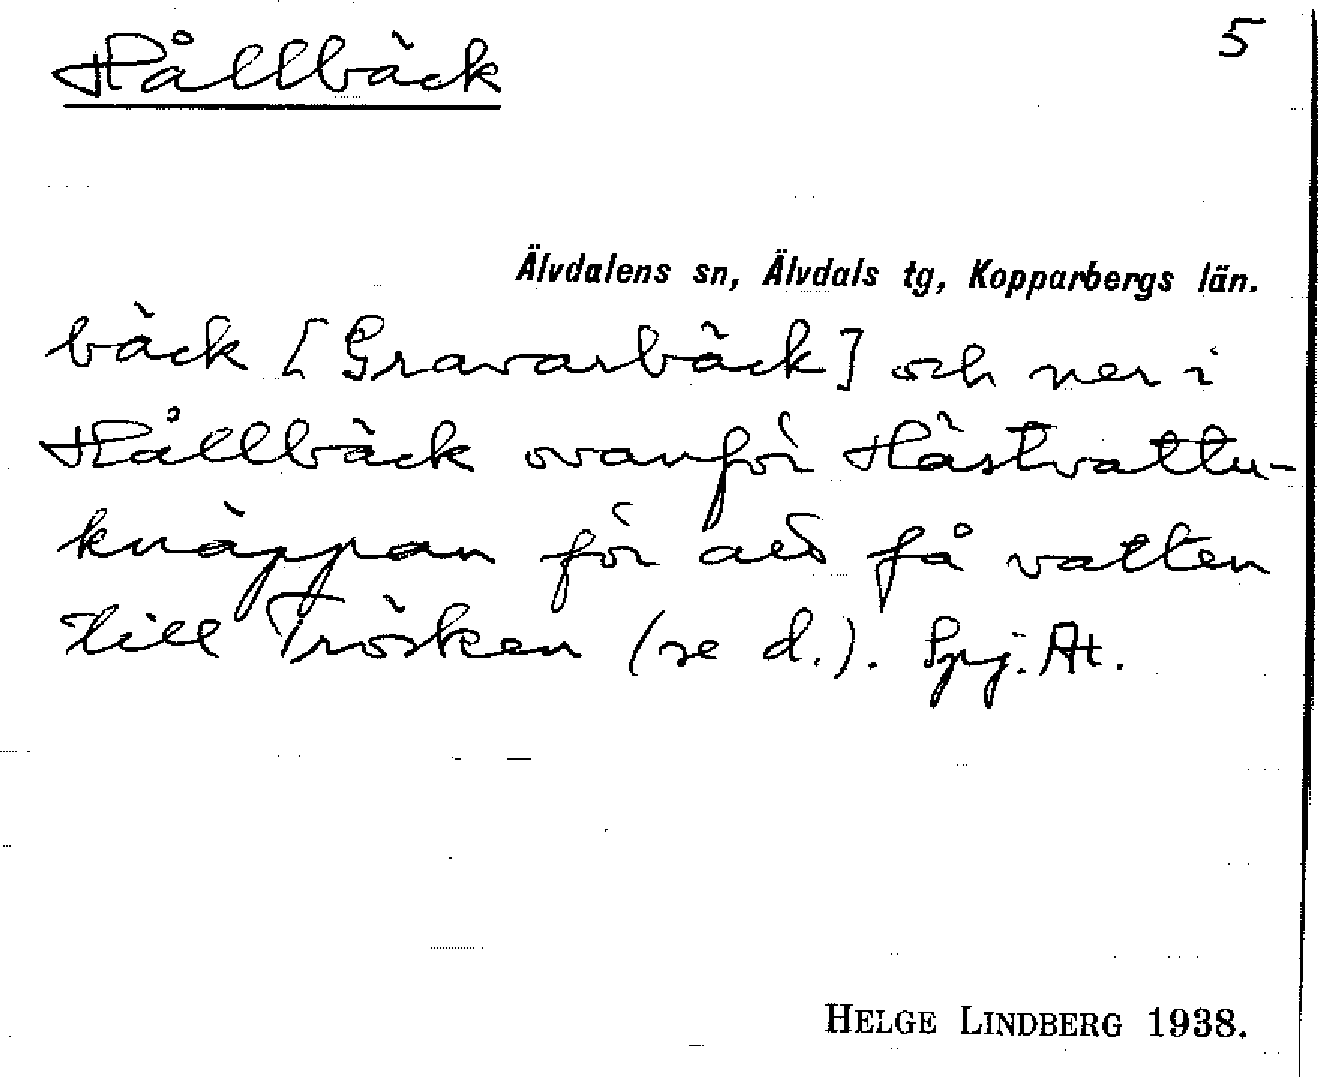 Hållbäck 5
Älvdalens sn, Älvdals tg, Kopparbergs län.
bäck [Gravarbäck] och ner i
Hållbäck ovanför Hästvattu-
knäppan för att få vatten
till Trösken (se d.). Spj. At.
HELGE LINDBERG 1938.